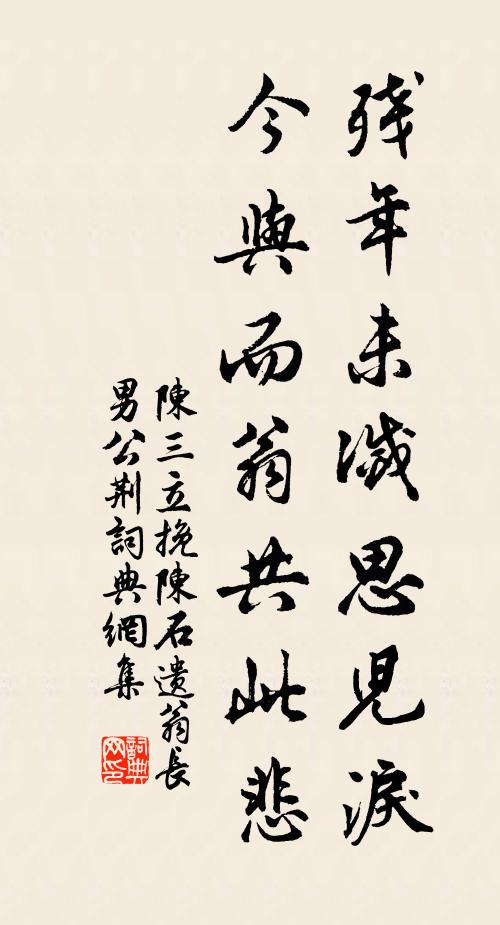 残年未滅思児淚
今與而翁共此悲
陳三立挽陳石遺翁長
男公荆詞典網集
詞典
网印